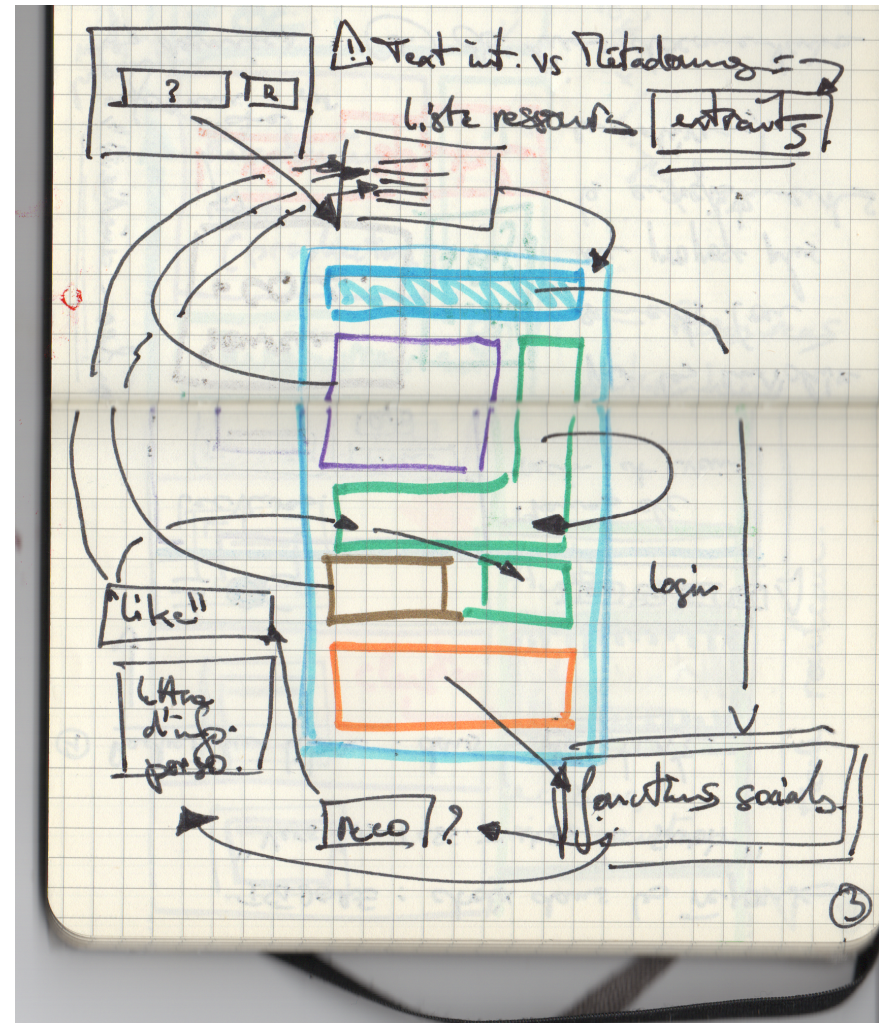 ⚠ Text int. vs Métadonnées =
? R
Liste ressources extraits
Login
"like"
d'info.
perso.
fonctions sociales
Reco ?
3